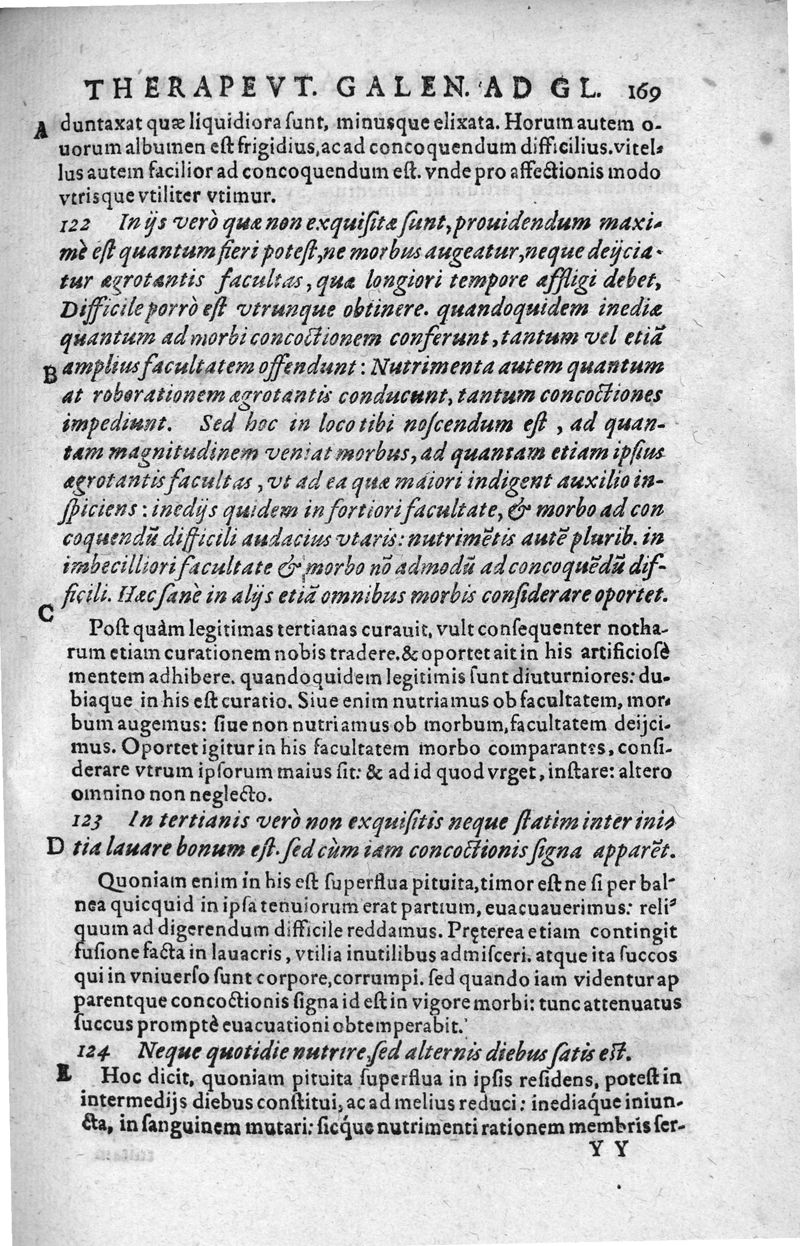 THERAPEVT. GALEN. AD GL. 169
A duntaxat quæ liquidiora ſunt, minusque elixata. Horum autem o-
uorum albumen eſt frigidius, ac ad concoquendum difficilius. vitel-
lus autem facilior ad concoquendum eſt. vnde pro affectionis modo
vtrisque vtiliter vtimur.
122 In ijs verò quæ non exquiſitæ ſunt, prouidendum maxi-
mè eſt quantum fieri poteſt, ne morbus augeatur, neque deijcia-
tur ægrotantis facultas, quæ longiori tempore affligi debet,
Difficile porrò eſt vtrunque obtinere. quandoquidem inediæ
quantum ad morbi concoctionem conferunt, tantum vel etiā
B amplius facultatem offendunt: Nutrimenta autem quantum
at roborationem ægrotantis conducunt, tantum concoctiones
impediunt. Sed hoc in loco tibi noſcendum eſt, ad quan-
tam magnitudinem veniat morbus, ad quantam etiam ipſius
ægrotantis facultas, vt ad ea quæ maiori indigent auxilio in-
ſpiciens: inedijs quidem in fortiori facultate, & morbo ad con
coquendū difficili audacius vtaris: nutrimētis autē plurib. in
imbecilliori facultate & morbo nō admodū ad concoquēdū dif-
ficili. Hæc ſanè in alijs etiā omnibus morbis conſiderare oportet.
C
Poſt quàm legitimas tertianas curauit, vult conſequenter notha-
rum etiam curationem nobis tradere. & oportet ait in his artificioſè
mentem adhibere. quandoquidem legitimis ſunt diuturniores: du-
biaque in his eſt curatio. Siue enim nutriamus ob facultatem, mor-
bum augemus: ſiue non nutriamus ob morbum, facultatem deijci-
mus. Oportet igitur in his facultatem morbo comparantes, conſi-
derare vtrum ipſorum maius ſit: & ad id quod vrget, inſtare: altero
omnino non neglecto.
123 In tertianis verò non exquiſitis neque ſtatim inter ini-
D tia lauare bonum eſt. ſed cùm iam concoctionis ſigna apparēt.
Quoniam enim in his eſt ſuperflua pituita, timor eſt ne ſi per bal-
nea quicquid in ipſa tenuiorum erat partium, euacuauerimus: reli-
quum ad digerendum difficile reddamus. Pręterea etiam contingit
fuſione facta in lauacris, vtilia inutilibus admiſceri. atque ita ſuccos
qui in vniuerſo ſunt corpore, corrumpi. ſed quando iam videntur ap
parentque concoctionis ſigna id eſt in vigore morbi: tunc attenuatus
ſuccus promptè euacuationi obtemperabit.
124 Neque quotidie nutrire, ſed alternis diebus ſatis eſt.
E Hoc dicit, quoniam pituita ſuperflua in ipſis reſidens, poteſt in
intermedijs diebus conſtitui, ac ad melius reduci: inediáque iniun-
cta, in ſanguinem mutari: ſicque nutrimenti rationem membris ſer-
Y Y